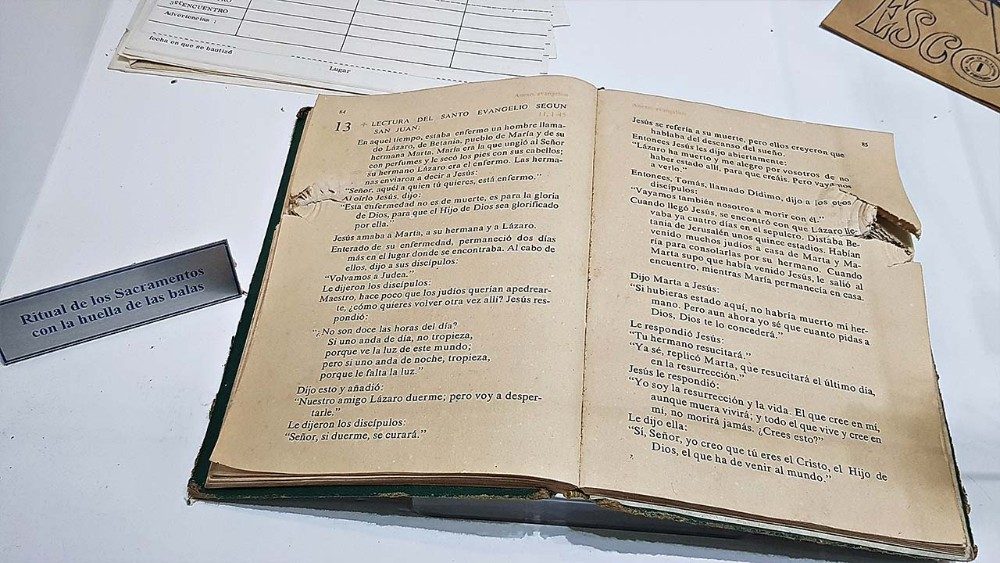 3er ENCUENTRO
Advertencias :
fecha en que se bautizó
Lugar
ESCO
Ritual de los Sacramentos
con la huella de las balas
84
13 + LECTURA DEL SANTO EVANGELIO SEGUN
SAN JUAN.
11, 1-45
En aquel tiempo, estaba enfermo un hombre llama-
do Lázaro, de Betania, pueblo de María y de su
hermana Marta. María era la que ungió al Señor
con perfumes y le secó los pies con sus cabellos;
su hermano Lázaro era el enfermo. Las herma-
nas enviaron a decir a Jesús:
"Señor, aquél a quien tú quieres, está enfermo."
Al oírlo Jesús, dijo:
"Esta enfermedad no es de muerte, es para la gloria
de Dios, para que el Hijo de Dios sea glorificado
por ella."
Jesús amaba a Marta, a su hermana y a Lázaro.
Enterado de su enfermedad, permaneció dos días
más en el lugar donde se encontraba. Al cabo de
ellos, dijo a sus discípulos:
"Volvamos a Judea."
Le dijeron los discípulos:
Maestro, hace poco que los judíos querían apedrear-
te, ¿cómo quieres volver otra vez allí? Jesús res-
pondió:
¿No son doce las horas del día?
Si uno anda de día, no tropieza,
porque ve la luz de este mundo;
pero si uno anda de noche, tropieza,
porque le falta la luz."
Dijo esto y añadió:
"Nuestro amigo Lázaro duerme; pero voy a desper-
tarle."
Le dijeron los discípulos:
"Señor, si duerme, se curará."
85
Jesús se refería a su muerte, pero ellos creyeron que
hablaba del descanso del sueño.
Entonces Jesús les dijo abiertamente:
"Lázaro ha muerto y me alegro por vosotros de no
haber estado allí, para que creáis. Pero vayamos
a verlo."
Entonces, Tomás, llamado Dídimo, dijo a los otros
discípulos:
"Vayamos también nosotros a morir con él."
Cuando llegó Jesús, se encontró con que Lázaro lle-
vaba ya cuatro días en el sepulcro. Distaba Be-
tania de Jerusalén unos quince estadios. Habían
venido muchos judíos a casa de Marta y Ma-
ría para consolarlas por su hermano. Cuando
Marta supo que había venido Jesús, le salió al
encuentro, mientras María permanecía en casa.
Dijo Marta a Jesús:
"Si hubieras estado aquí, no habría muerto mi her-
mano. Pero aun ahora yo sé que cuanto pidas a
Dios, Dios te lo concederá."
Le respondió Jesús:
"Tu hermano resucitará."
"Ya sé, replicó Marta, que resucitará el último día,
en la resurrección."
Jesús le respondió:
"Yo soy la resurrección y la vida. El que cree en mí,
aunque muera vivirá; y todo el que vive y cree en
mí, no morirá jamás. ¿Crees esto?"
Le dijo ella:
"Sí, Señor, yo creo que tú eres el Cristo, el Hijo de
Dios, el que ha de venir al mundo."